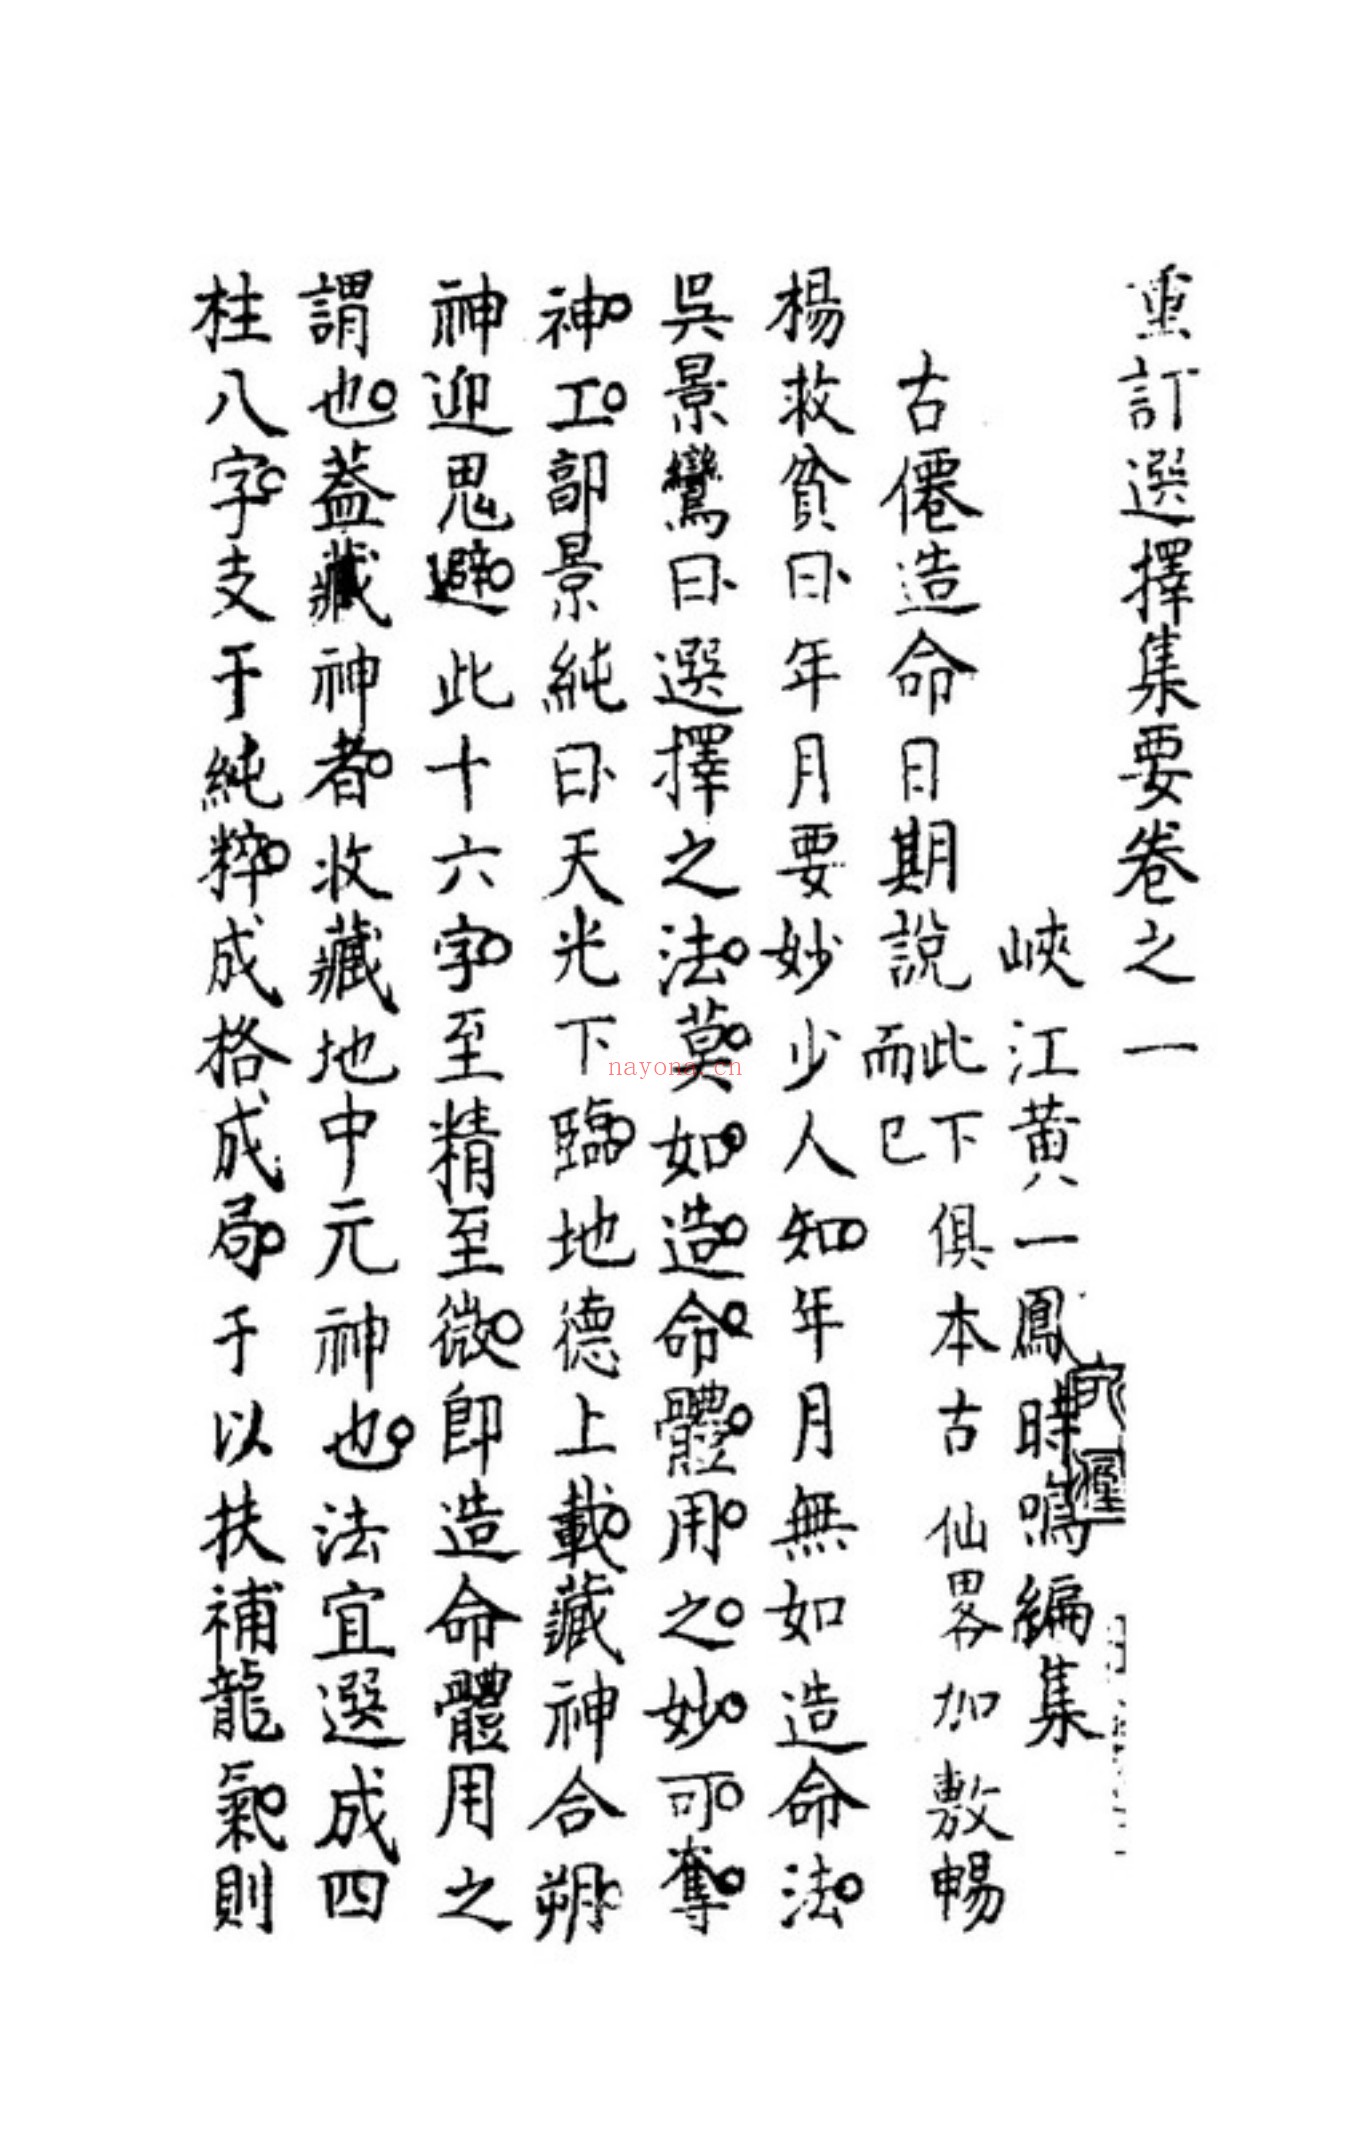 重訂選擇集要卷之一
峽江黃一鳳時鳴編集
古僊造命日期說
此下俱本古仙畧加敷暢
而已
楊救貧曰年月要妙少人知。年月無如造命法。
吳景鸞曰選擇之法。莫。如。造。命。體。用。之。妙。可。奪。
神。工。郭景純曰天光下臨。地德上載。藏神合朔。
神迎鬼避。此十六字。至精至微。即造命體用之
謂也。蓋藏神者。收藏地中元神也。法宜選成四
柱八字。支干純粹。成格成局。于以扶補龍氣。則
nayona.cn